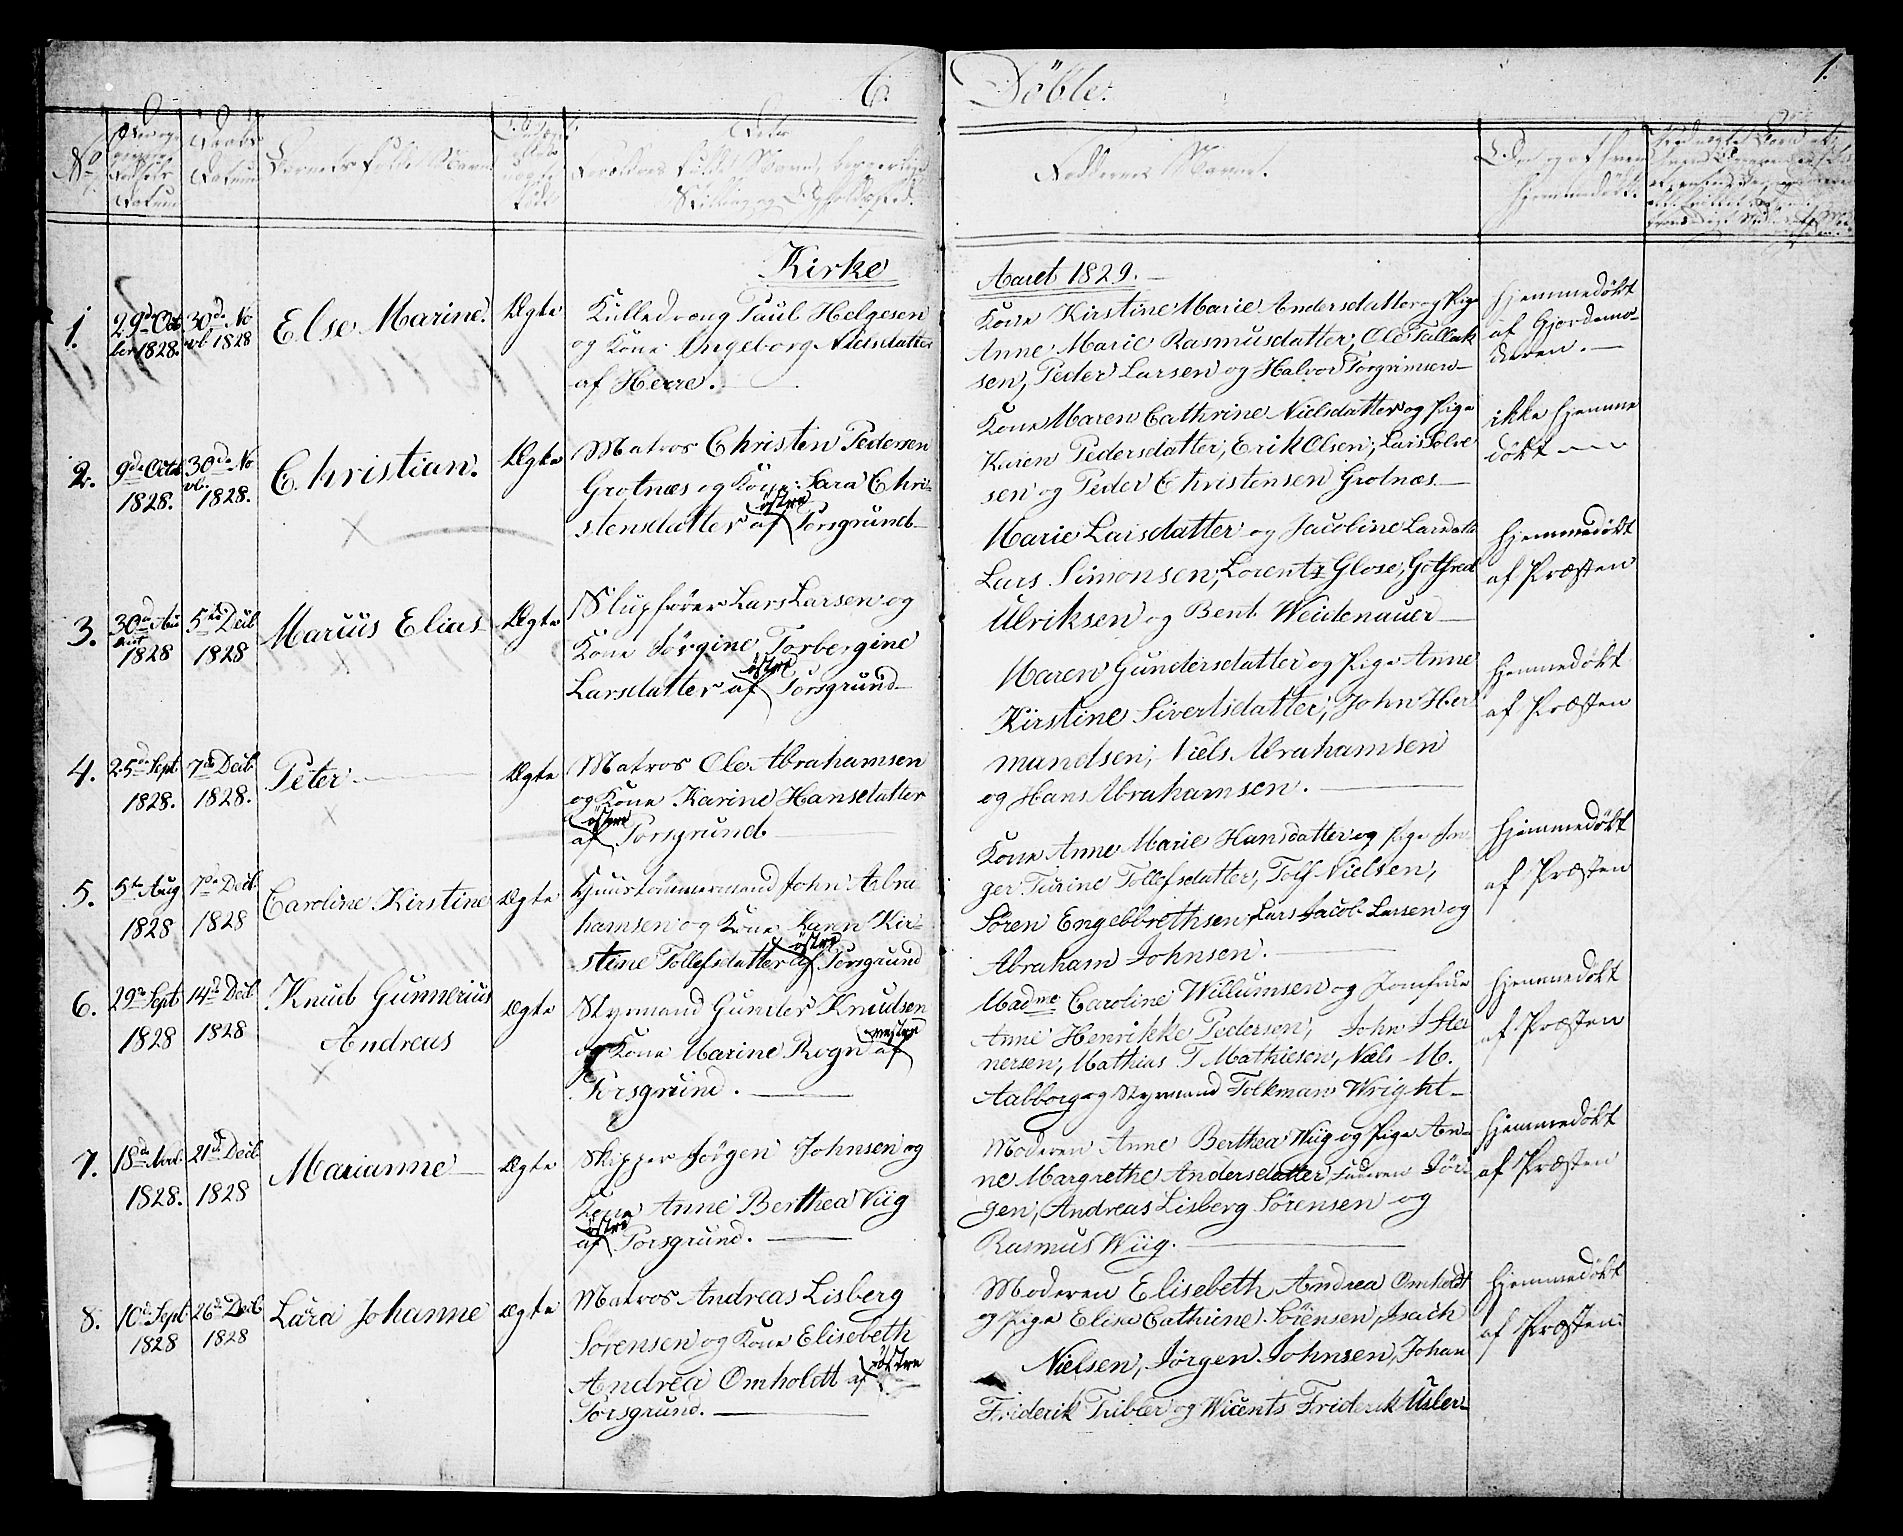 Döbte. 1.
No
Barnets fulde Navn
Faddernes Navne.
Kirke Aaret 1829.
1. 29de Octo ber 1828. 30de No vb 1828 Else Marine. Ægte
Kulledreng Paul Helgesen
og Kone Ingeborg Nielsdatter
af Herre.
Kone Kirstine Marie Andersdatter og Pige
Anne Marie Rasmusdatter, Ole Tallak
sen, Peder Larsen og Halvor Torgrimsen
Hjemmedöbt
af Gjordemo-
deren.
2. 9de Octob 1828. 30de No vb. 1828. Christian. Ægte
Matros Christen Pedersen
Grotnæs og Kone Sara Chri-
stensdatter af östre Porsgrund
Kone Maren Cathrine Nielsdatter og Pige
Karen Pedersdatter, Erik Olsen, Lars Solve
sen og Peder Christensen Grotnæs
ikke hjemme
döbt
3. 30de Au gust 1828 5te Decb 1828 Marius Elias Ægte
Slupförer Lars Larsen og
Kone Jörgine Torbergine
Larsdatter af östre Porsgrund
Marie Larsdatter og Jacoline Larsdatt
Lars Simonsen, Lorentz Glose, Gotfred
Ulriksen og Bent Weidenauer
Hjemmedöbt
af Præsten
4. 25de Sept 1828. 7de Decb. 1828. Peter Ægte
Matros Ole Abrahamsen
og Kone Karine Hansdatter
af östre Porsgrund
Maren Gundersdatter og Pige Anne
Kirstine Sivertsdatter, John Her
mundsen, Niels Abrahamsen
og Hans Abrahamsen.
Hjemmedöbt
af Præsten
5. 5te Aug 1828 7de Decb. 1828 Caroline Kirstine Ægte
Huustömmermand John Abra
hamsen og Kone Karen Kir-
stine Tollefsdatter af östre Porsgrund
Kone Anne Marie Hansdatter og Pige In
ger Turine Tollefsdatter, Tolf Nielsen,
Sören Engebbrethsen, Lars Jacob Larsen og
Abraham Johnsen.
Hjemmedöbt
af Præsten
6. 29de Sept 1828 14de Decb 1828 Knud Gunnerius
Andreas Ægte
Styrmand Gunder Knudsen
og Kone Marine Rogn af vestre
Porsgrund.
Madme Caroline Willumsen og Jomfrue
Anne Henrikke Pedersen, John I Ste
nersen, Mathias T Mathiesen, Niels M.
Aalborg og Styrmand Folkman Wright
Hjemmedöbt
af Præsten
7. 18de Novb 1828. 21de Decb. 1828 Marianne Ægte
Skipper Jörgen Johnsen og
Kone Anne Berthea Wiig
af östre Porsgrund.
Moderen Anne Berthea Wiig og Pige An-
ne Margrethe Andersdatter, Faderen Jör
gen, Andreas Lisberg Sörensen og
Rasmus Wiig.
Hjemmedöbt
af Præsten
8. 10de Sept 1828 26de Decb 1828 Lara Johanne Ægte
Matros Andreas Lisberg
Sörensen og Kone Elisebeth
Andrea Omholdt af östre
Porsgrund.
Moderen Elisebeth Andrea Omholdt
og Pige Elise Cathrine Sörensen, Isach
Nielsen, Jörgen Johnsen, Johan
Friderik Tribler og Wicents Friderik Usler
Hjemmedöbt
af Præsten